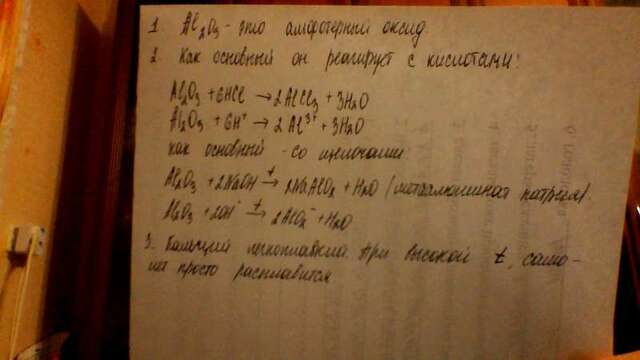 1. Al2O3 - это амфотерный оксид.
2. Как основный он реагирует с кислотами:
Al2O3 + 6HCl → 2AlCl3 + 3H2O
Al2O3 + 6H⁺ → 2Al³⁺ + 3H2O
как основный - со щелочами:
Al2O3 + 2NaOH →t 2NaAlO2 + H2O (метаалюминат натрия).
Al2O3 + 2OH⁻ →t 2AlO2⁻ + H2O
3. Кальций легкоплавкий. При высокой t, само-
лёт просто расплавится